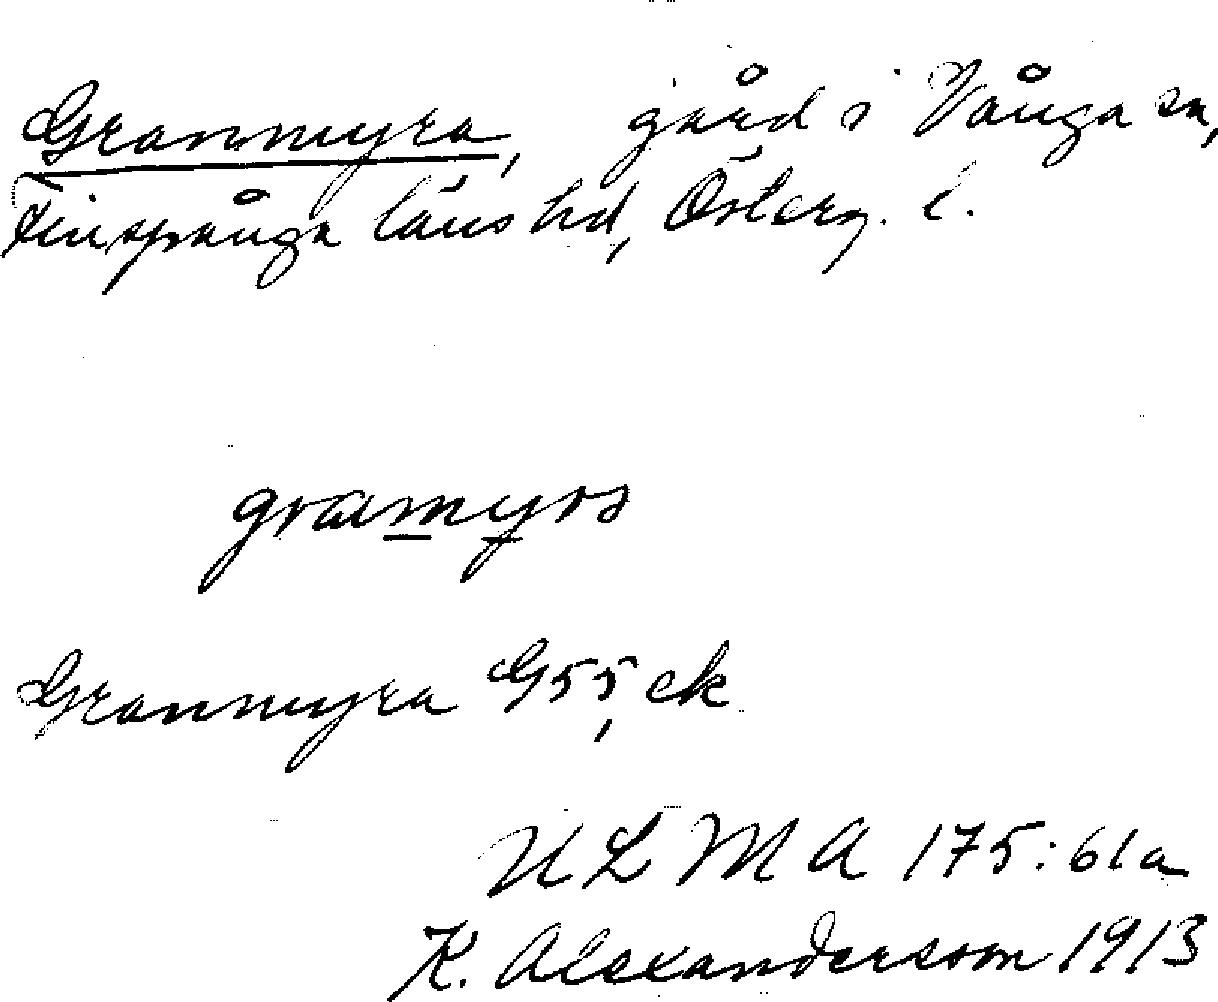 Granmyra, gård i Vånga sn,
Finspånga läns hd, Österg. l.
gramyra
Granmyra G55, ek
ULMA 175:61a
K. Alexanderson 1913